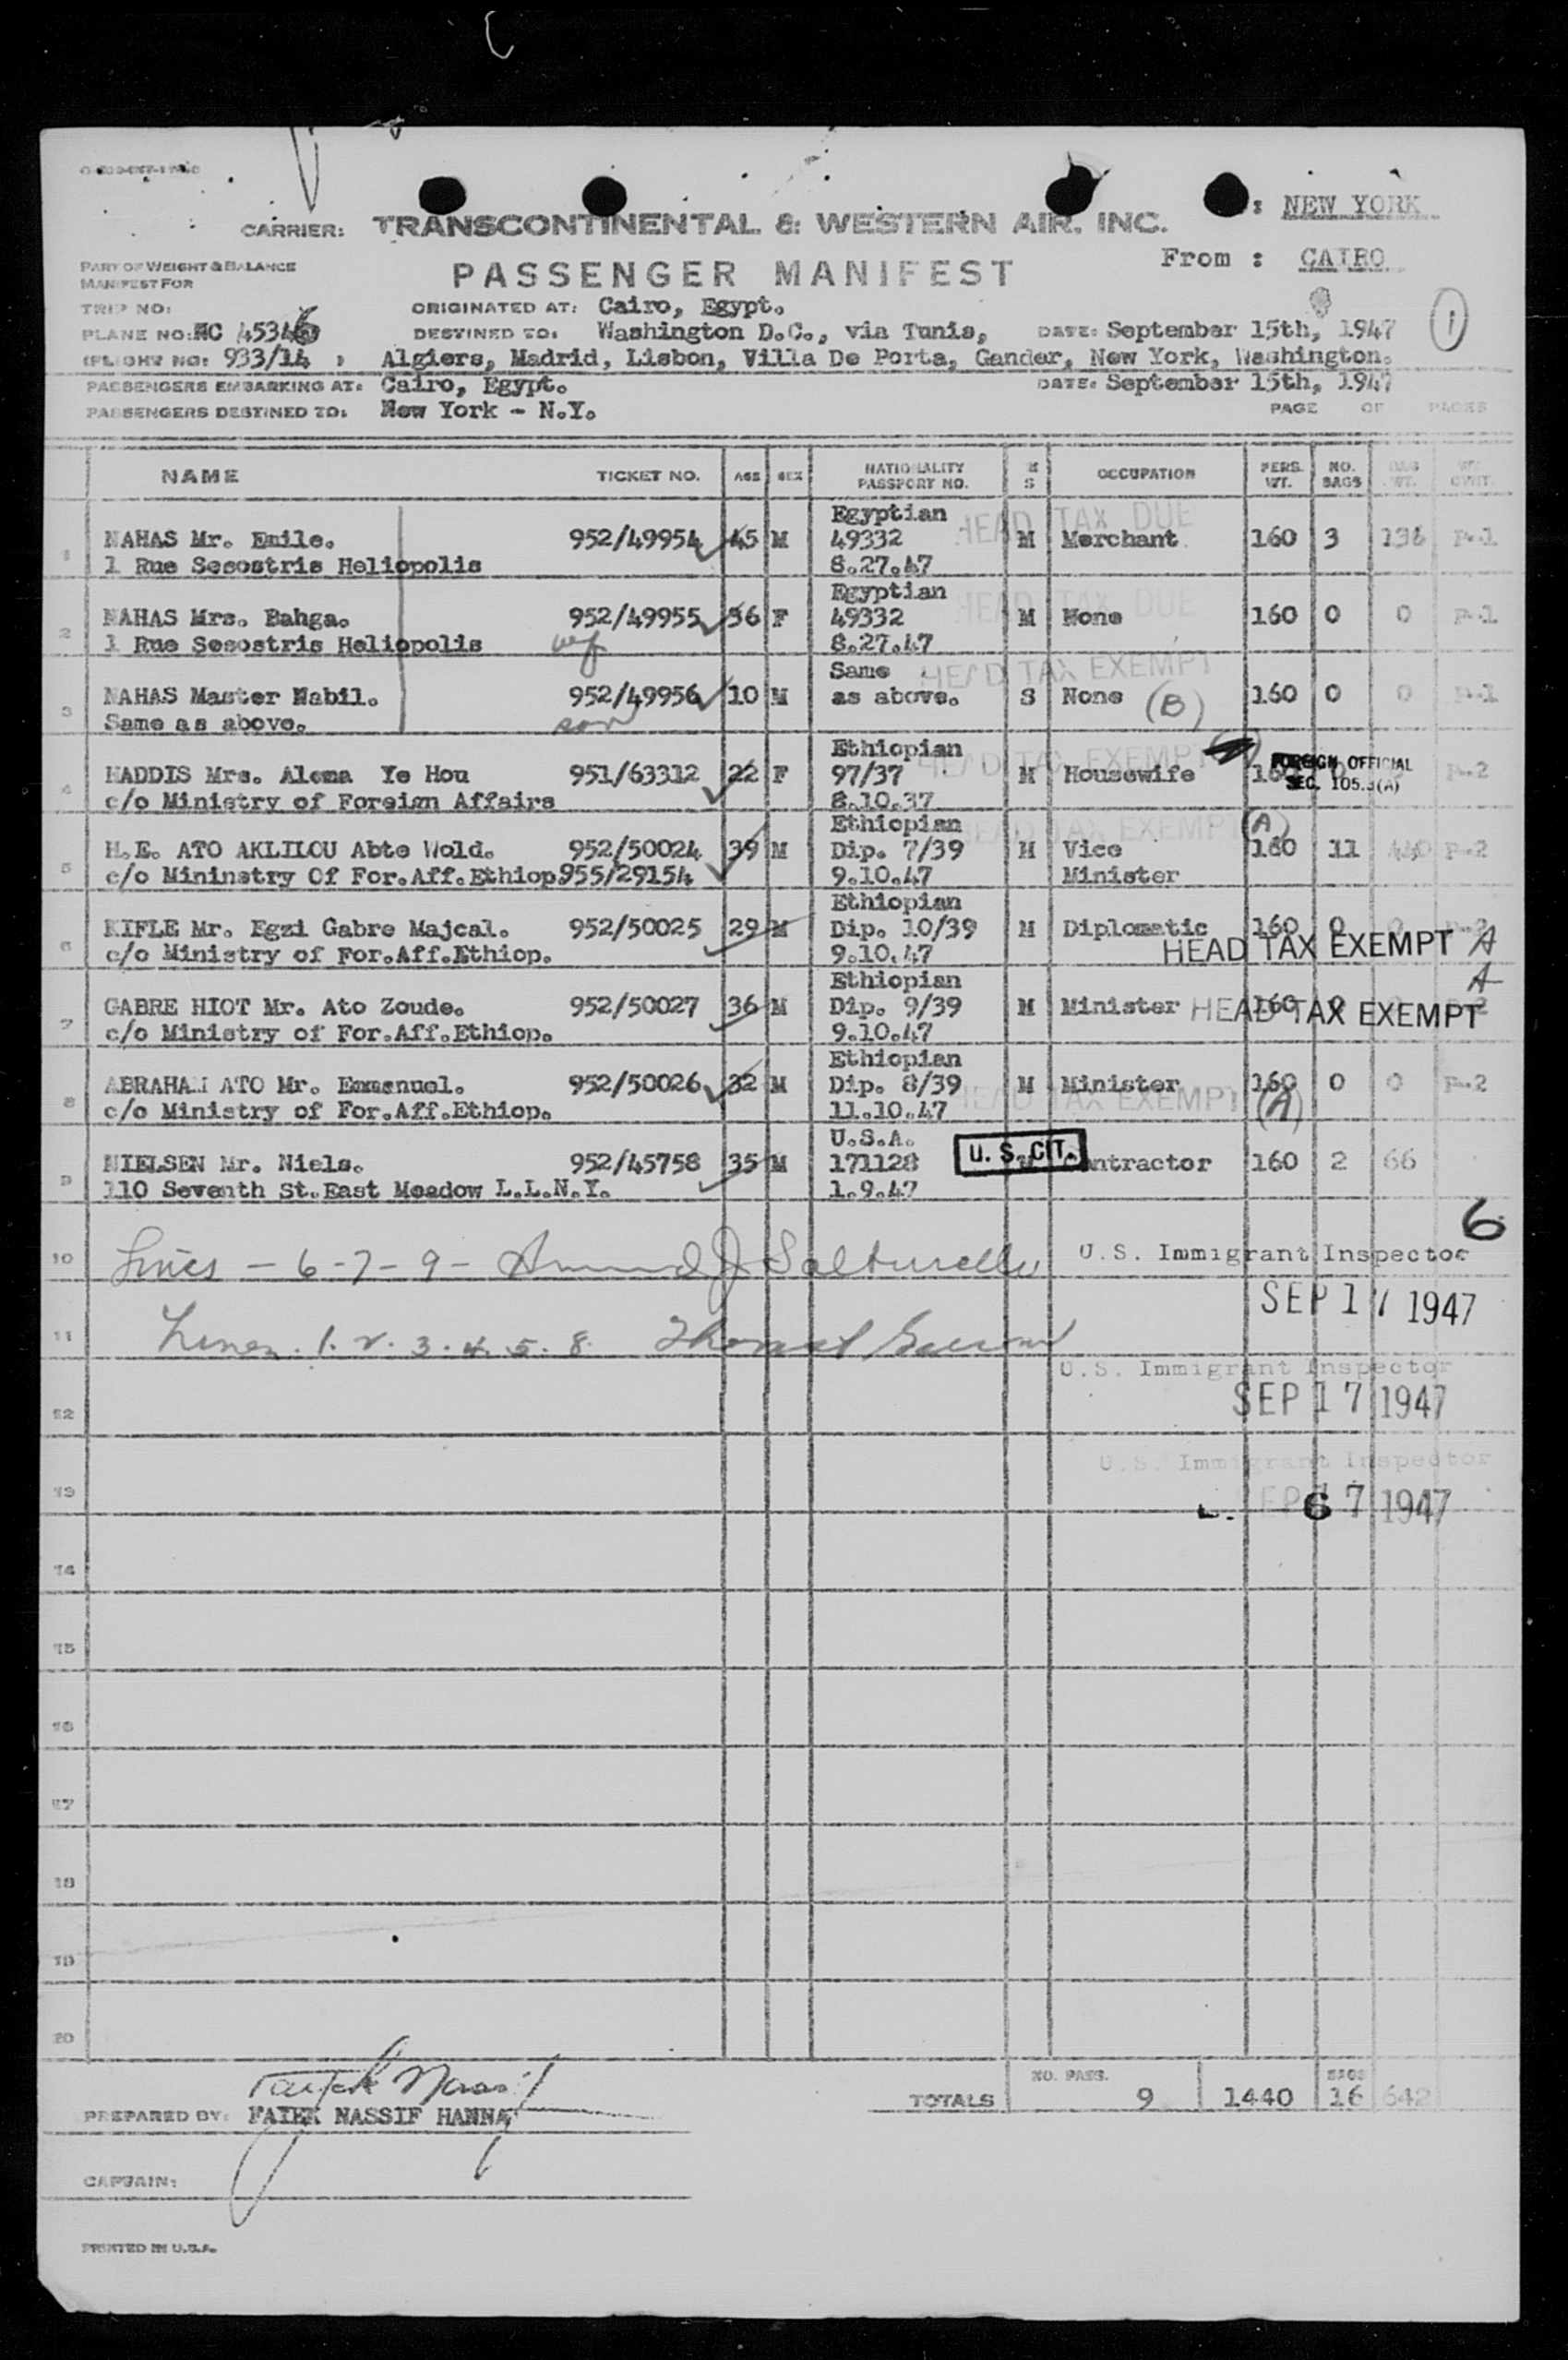 : NEW YORK
CARRIER: TRANSCONTINENTAL & WESTERN AIR, INC.
From : CAIRO
PART OF WEIGHT & BALANCE
MANIFEST FOR
PASSENGER MANIFEST
TRIP NO:
ORIGINATED AT: Cairo, Egypt.
PLANE NO: NC 45346
DESTINED TO: Washington D.C., via Tunis,
DATE: September 15th, 1947
1
(FLIGHT NO: 933/14 ) Algiers, Madrid, Lisbon, Villa De Porta, Gander, New York, Washington.
PASSENGERS EMBARKING AT: Cairo, Egypt.
DATE: September 15th, 1947
PASSENGERS DESTINED TO: New York - N.Y.
PAGE OF PAGES
NAME TICKET NO. AGE SEX NATIONALITY PASSPORT NO. M S OCCUPATION PERS. WT. NO. BAGS BAG WT.
Egyptian HEAD TAX DUE
1 NAHAS Mr. Emile. 952/49954 45 M 49332 M Merchant. 160 3 136 P-1
1 Rue Sesostris Heliopolis 8.27.47
Egyptian HEAD TAX DUE
2 NAHAS Mrs. Bahga. 952/49955 36 F 49332 M None 160 0 0 P-1
1 Rue Sesostris Heliopolis wf 8.27.47
Same HEAD TAX EXEMPT
3 NAHAS Master Nabil. 952/49956 10 M as above. S None (B) 160 0 0 P-1
Same as above. son
Ethiopian HEAD TAX EXEMPT
4 HADDIS Mrs. Alema Ye Hou 951/63312 22 F 97/37 M Housewife 160 FOREIGN OFFICIAL P-2
c/o Ministry of Foreign Affairs 8.10.37 SEC. 105.3(A)
Ethiopian HEAD TAX EXEMPT (A)
5 H.E. ATO AKLILOU Abte Wold. 952/50024 39 M Dip. 7/39 M Vice 160 11 440 P-2
c/o Mininstry Of For.Aff.Ethiop 955/29154 9.10.47 Minister
Ethiopian
6 KIFLE Mr. Egzi Gabre Majcal. 952/50025 29 M Dip. 10/39 M Diplomatic 160 0 0 P-2
c/o Ministry of For.Aff.Ethiop. 9.10.47 HEAD TAX EXEMPT A
Ethiopian A
7 GABRE HIOT Mr. Ato Zoude. 952/50027 36 M Dip. 9/39 M Minister 160 0 HEAD TAX EXEMPT
c/o Ministry of For.Aff.Ethiop. 9.10.47
Ethiopian
8 ABRAHAM ATO Mr. Emmanuel. 952/50026 32 M Dip. 8/39 M Minister 160 0 0 P-2
c/o Ministry of For.Aff.Ethiop. 11.10.47 HEAD TAX EXEMPT (A)
U.S.A.
9 NIELSEN Mr. Niels. 952/45758 35 M 171128 U. S. CIT. Contractor 160 2 66
110 Seventh St.East Meadow L.L.N.Y. 1.9.47
6
10 Lines - 6-7-9- U.S. Immigrant Inspector
SEP 17 1947
11 Lines. 1. 2. 3. 4. 5. 8. Thomas
U.S. Immigrant Inspector
12 SEP 17 1947
U.S. Immigrant Inspector
13 SEP 6 7 1947
14
15
16
17
18
19
20
TOTALS NO. PASS. 9 1440 BAGS 16 642
PREPARED BY: FAIEK NASSIF HANNA
CAPTAIN:
PRINTED IN U.S.A.